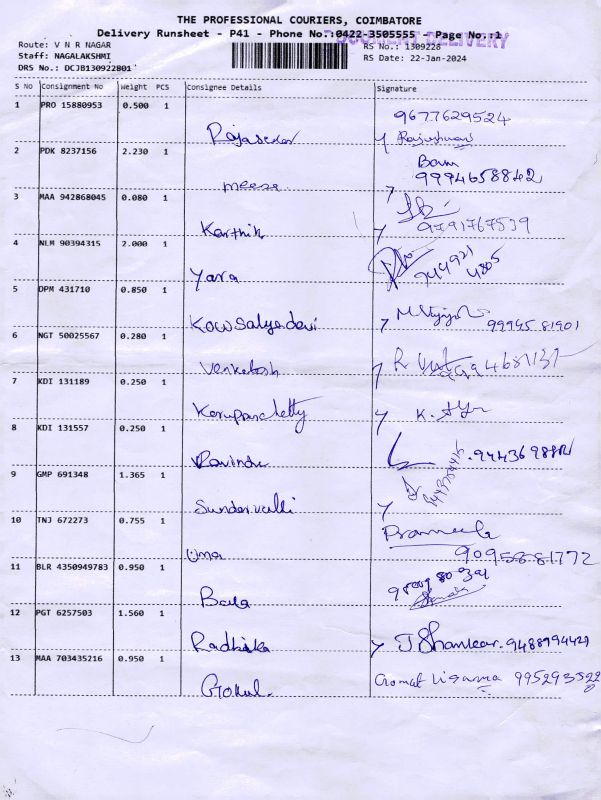 THE PROFESSIONAL COURIERS, COIMBATORE
Delivery Runsheet - P41 - Phone No.:0422-3505555 - Page No.:1
DOCUMENT DELIVERY
Route: V N R NAGAR RS No.: 1309228
Staff: NAGALAKSHMI RS Date: 22-Jan-2024
DRS No.: DCJB130922801
S No Consignment No Weight PCS Consignee Details Signature
1 PRO 15880953 0.500 1 9677629524
Rajasekar
2 PDK 8237156 2.230 1
meena 9994658842
3 MAA 942868045 0.080 1
Karthik 9791767539
4 NLM 90394315 2.000 1
Yara 944921
4805
5 DPM 431710 0.850 1
Kowsalyadevi 99945 81901
6 NGT 50025567 0.280 1
Venkatesh
7 KDI 131189 0.250 1
Karupanchetty K.
8 KDI 131557 0.250 1
Ravindu
9 GMP 691348 1.365 1
Sundervalli
10 TNJ 672273 0.755 1 Prameela
Uma 9095881772
11 BLR 4350949783 0.950 1
Bala
12 PGT 6257503 1.560 1
Radhika J Shankar. 9488994429
13 MAA 703435216 0.950 1
Gokul. 9952935522